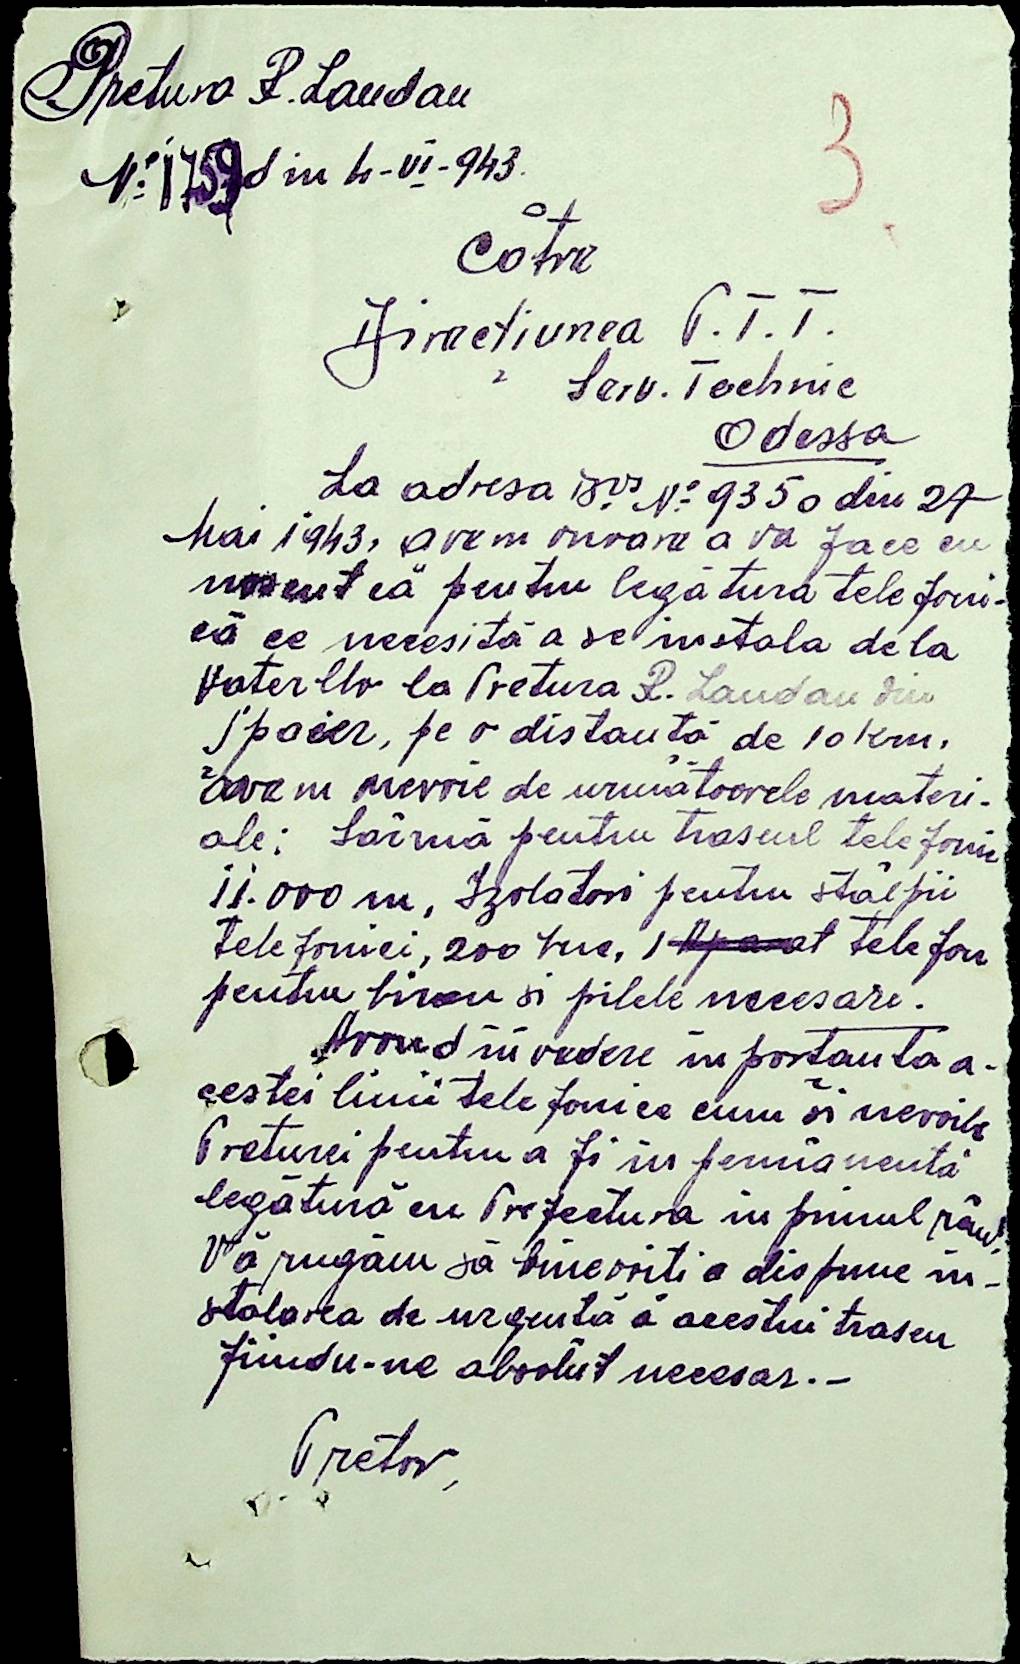 Pretura R. Landau
Nº 1759 din 4-VI-943.
3
Cătra
Direcțiunea P.T.T.
Serv. Technic
Odessa
La adresa Dvs Nº 9350 din 27
Mai 1943, avem onoarea a va face cu
noscut că pentru legătura telefoni-
că ce necesită a se instala de la
Waterllo la Pretura R. Landau din
Șpaier, pe o distantă de 10 km,
avem nevoie de următoarele materi-
ale: Sârmă pentru traseul telefonic
11.000 m, Izolatori pentru stâlpii
telefonici, 200 buc, 1 Aparat telefon
pentru birou si pilele necesare.
Avand în vedere importanta a-
cestei linii telefonice cum și nevoile
Preturei pentru a fi în permanentă
legătură cu Prefectura in primul rând,
Vă rugăm să binevoiti a dispune in-
stalarea de urgentă a acestui traseu
fiindu-ne absolut necesar.-
Pretor,